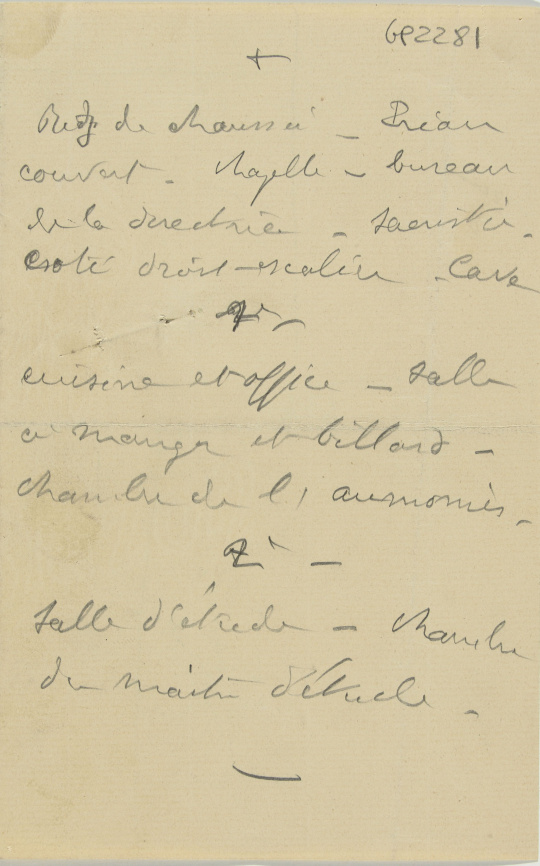 GP2281
+
Rez de chaussée _ Préau
couvert - chapelle - bureau
de la directrice - sacristie -
coté droit - escalier - Cave
cuisine et office - salle
a manger et billard -
chambre de l' aumonier -
salle d'étude - chambre
du maitre d'étude -